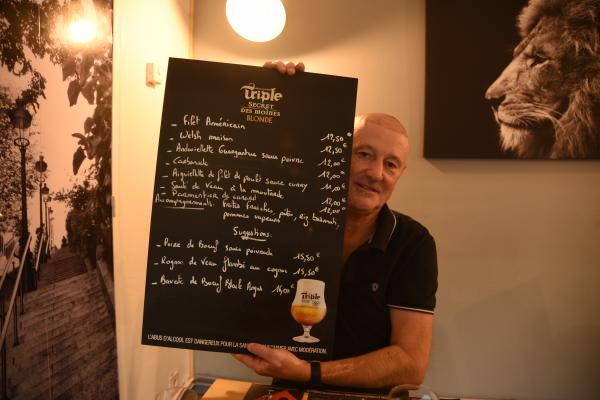 Triple
SECRET
DES MOINES
BLONDE
- Filet Américain 12,50€
- Welsh maison 12,50€
- Andouillette Guargantua sauce poivre 12,00€
- Carbonade 12,00€
- Aiguillette de filet de poulet sauce curry 11,00€
- Sauté de Veau à la moutarde 12,00€
- Parmentier de canard 12,00€
Accompagnements: frites fraîches, pates, riz basmati,
pommes vapeurs
Suggestions:
- Pièce de Boeuf sauce poivrade 15,50€
- Rognon de Veau flambé au cognac 15,50€
- Bavette de Boeuf Black Angus 16,00€
Triple
L'ABUS D'ALCOOL EST DANGEREUX POUR LA SAN AVEC MODÉRATION.